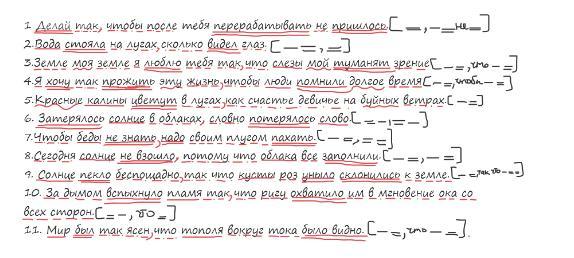 1. Делай так, чтобы после тебя перерабатывать не пришлось.[ =, -= не=]
2.Вода стояла на лугах,сколько видел глаз. [ - =, = ]
3.Земле моя земле я люблю тебя так,что слезы мой туманят зрение[- =, что - =]
4.Я хочу так прожить эту жизнь,чтобы люди помнили долгое время[- =, чтобы - =]
5.Красные калины цветут в лугах,как счастье девичье на буйных ветрах.[ - =]
6. Затерялось солнце в облаках, словно потерялось слово.[ = - , = - ]
7.Чтобы беды не знать,надо своим плугом пахать.[ - =, = = ]
8.Сегодня солнце не взошло, потому что облака все заполнили.[ - =, - = ]
9. Солнце пекло беспощадно,так что кусты роз уныло склонились к земле.[- =, так что - = =]
10. За дымом вспыхнуло пламя так,что ригу охватило им в мгновение ока со
всех сторон.[ = -, =]
11. Мир был так ясен,что тополя вокруг тока было видно.[ - =, что - = ].